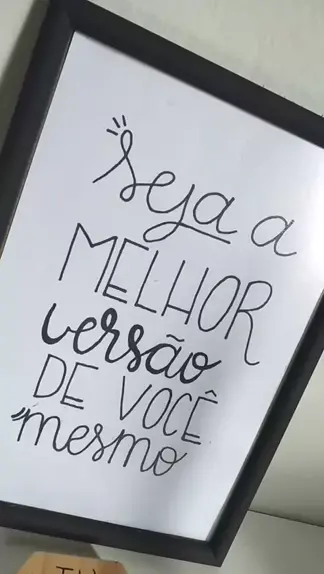 seja a
MELHOR
versão
DE VOCÊ
mesmo